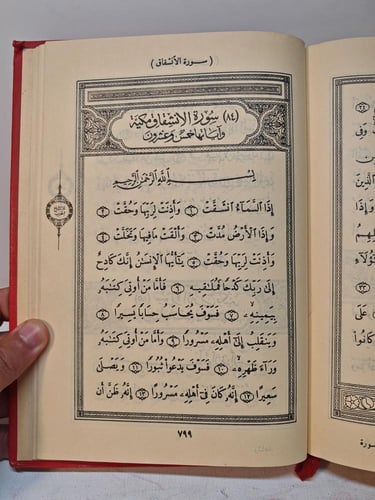 ( سورة الانشقاق )
(٨٤) سُورَةُ الانْشِقَاقِ مَكِّيَّة
وَآيَاتُهَا خَمْسٌ وَعِشْرُونَ
بِسْمِ ٱللَّهِ ٱلرَّحْمَٰنِ ٱلرَّحِيمِ
إِذَا ٱلسَّمَآءُ ٱنشَقَّتْ ١ وَأَذِنَتْ لِرَبِّهَا وَحُقَّتْ ٢
وَإِذَا ٱلْأَرْضُ مُدَّتْ ٣ وَأَلْقَتْ مَا فِيهَا وَتَخَلَّتْ ٤
وَأَذِنَتْ لِرَبِّهَا وَحُقَّتْ ٥ يَٰٓأَيُّهَا ٱلْإِنسَٰنُ إِنَّكَ كَادِحٌ
إِلَىٰ رَبِّكَ كَدْحًا فَمُلَٰقِيهِ ٦ فَأَمَّا مَنْ أُوتِيَ كِتَٰبَهُۥ
بِيَمِينِهِۦ ٧ فَسَوْفَ يُحَاسَبُ حِسَابًا يَسِيرًا ٨
وَيَنقَلِبُ إِلَىٰٓ أَهْلِهِۦ مَسْرُورًا ٩ وَأَمَّا مَنْ أُوتِيَ كِتَٰبَهُۥ
وَرَآءَ ظَهْرِهِۦ ١٠ فَسَوْفَ يَدْعُوا۟ ثُبُورًا ١١ وَيَصْلَىٰ
سَعِيرًا ١٢ إِنَّهُۥ كَانَ فِيٓ أَهْلِهِۦ مَسْرُورًا ١٣ إِنَّهُۥ ظَنَّ أَن
٧٩٩